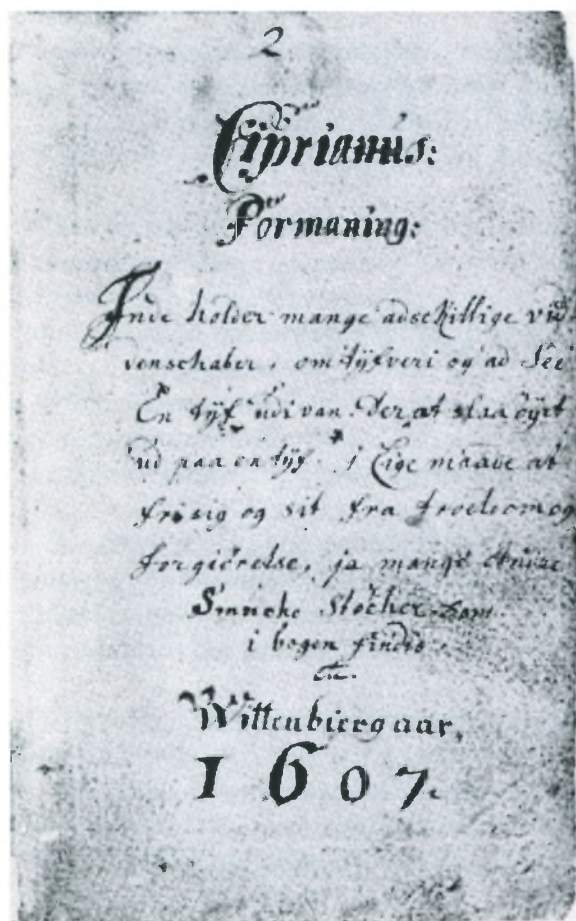 2
Ciprianus:
Formaning:
Inde holder mange adschillige vid
denschaber, om tÿfveri og ad See
En tÿf udi van. Der at slaa öÿet
ud paa en tÿf. j Lige maade at
fri sig og sit fra troeldom og
forgiörelse, ja mange
Smucke Stöcher som
i bogen findis
Wittenbierg aar,
1607.